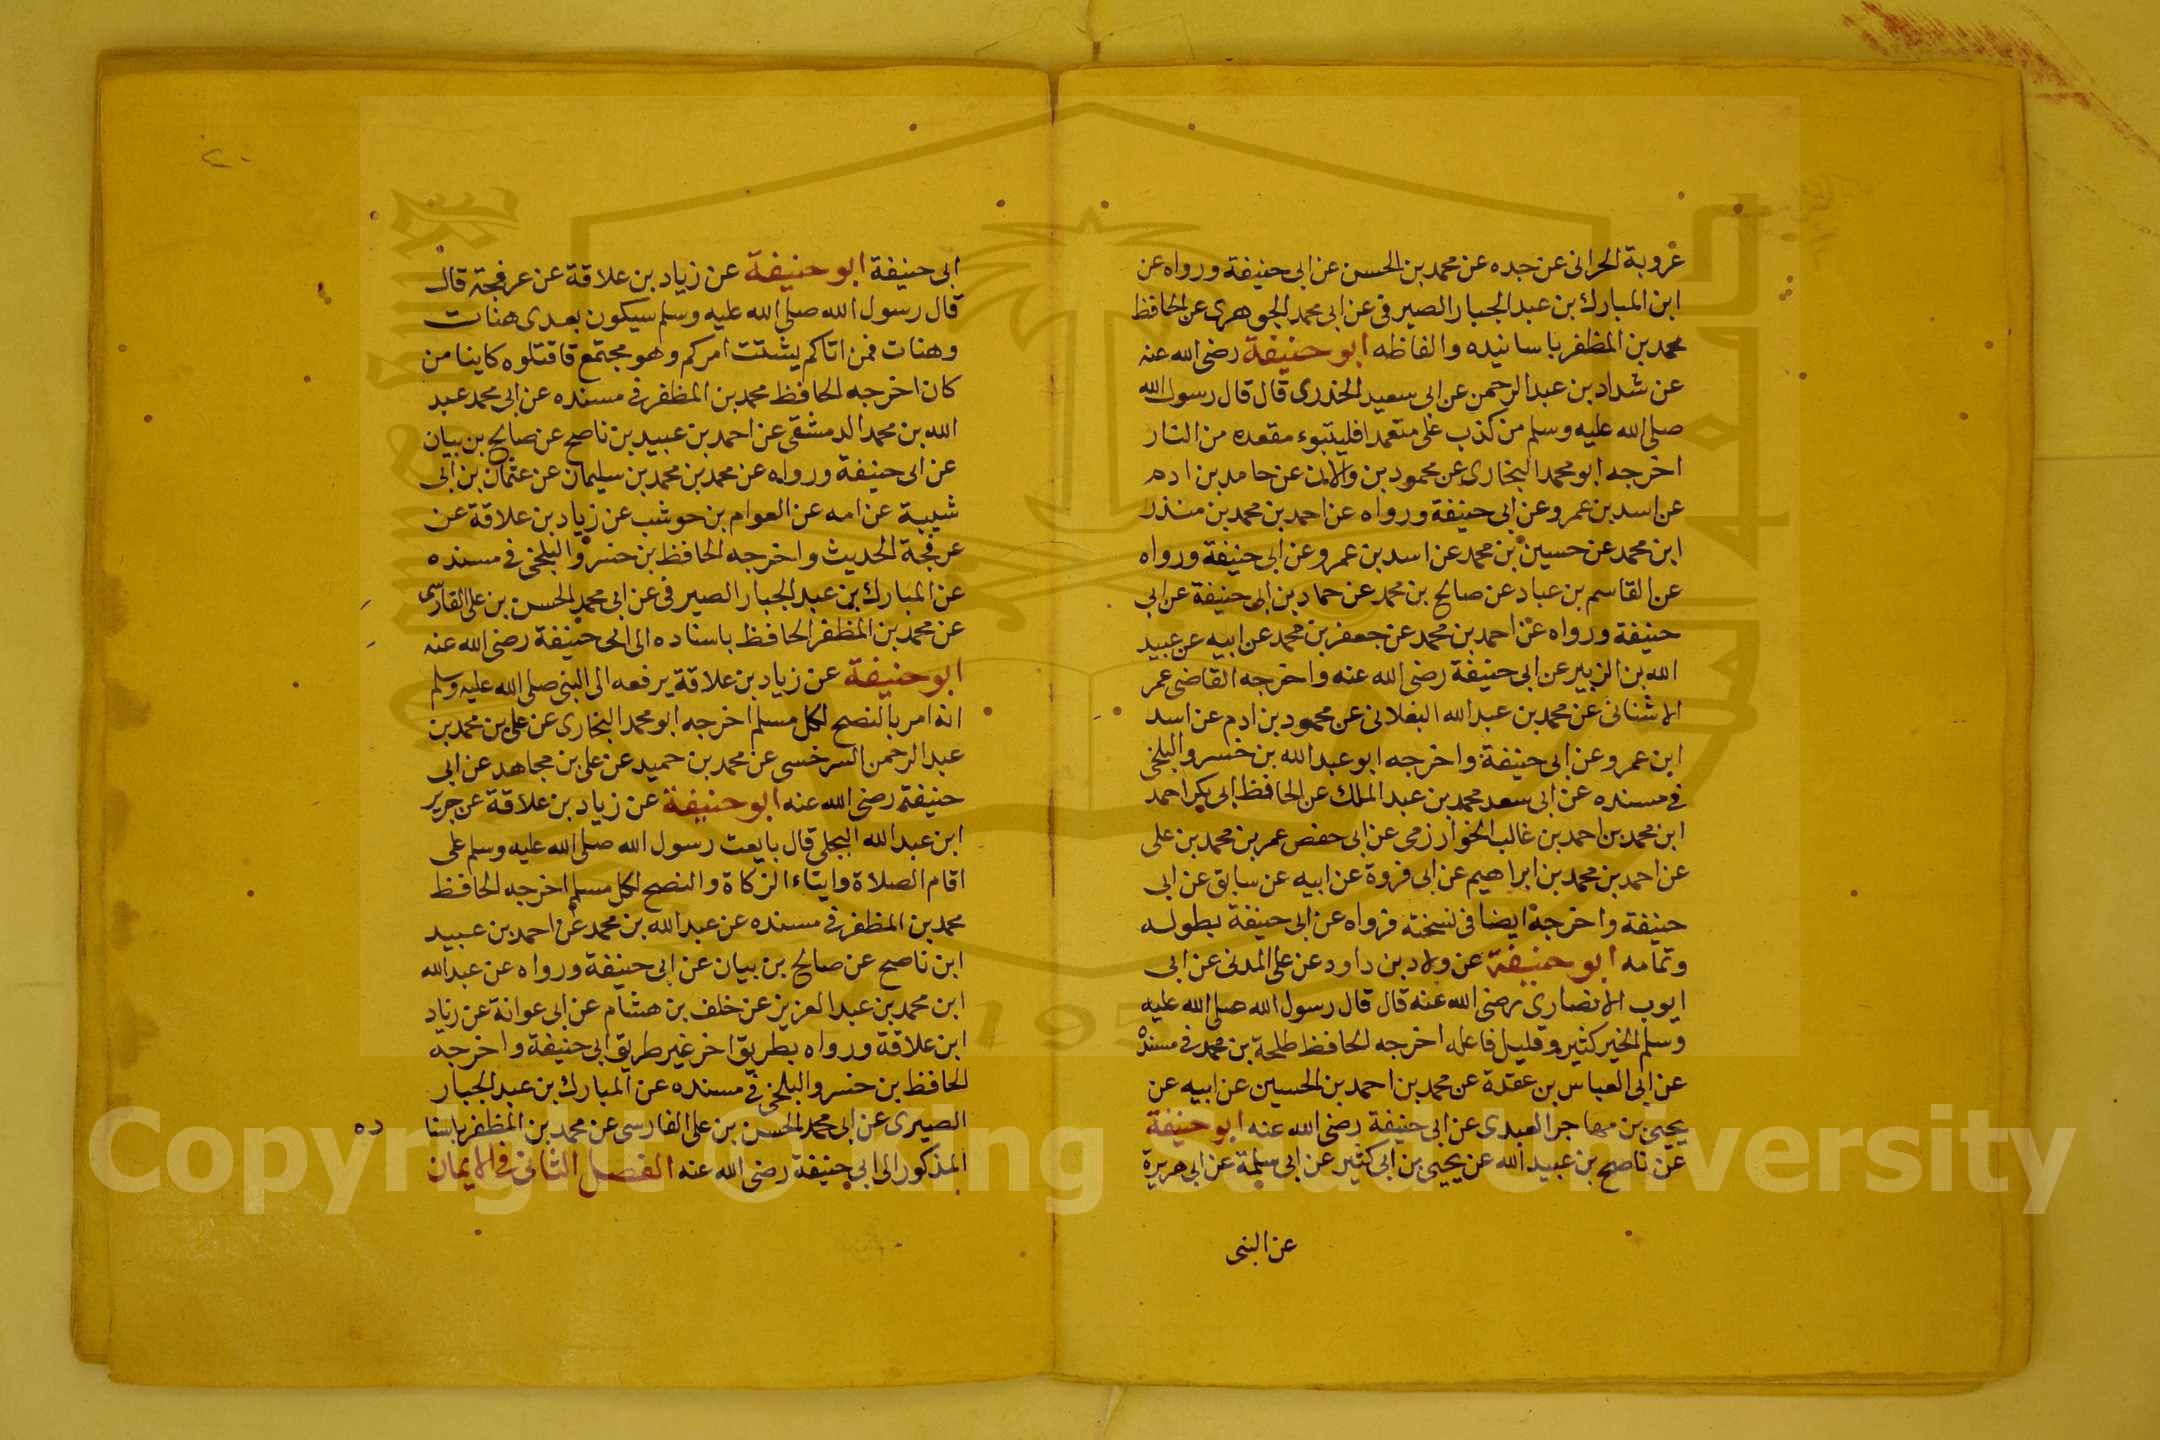 عروبة الحرانى عن جده عن محمد بن الحسن عن ابى حنيفة ورواه عن
ابن المبارك بن عبد الجبار الصيرفى عن ابى محمد الجوهرى عن الحافظ
محمد بن المظفر باسانيده والفاظه ابو حنيفة رضى الله عنه
عن شداد بن عبد الرحمن عن ابى سعيد الخدرى قال قال رسول الله
صلى الله عليه وسلم من كذب على متعمدا فليتبوء مقعده من النار
اخرجه ابو محمد البخارى عن محمود بن والان عن حامد بن ادم
عن اسد بن عمرو عن ابى حنيفة ورواه عن احمد بن محمد بن منذر
ابن محمد عن حسين بن محمد عن اسد بن عمرو عن ابى حنيفة ورواه
عن القاسم بن عباد عن صالح بن محمد عن حماد بن ابى حنيفة عن ابى
حنيفة ورواه عن احمد بن محمد عن جعفر بن محمد عن ابيه عن عبيد
الله بن الزبير عن ابى حنيفة رضى الله عنه واخرجه القاضى عمر
الاشنانى عن محمد بن عبد الله البغلانى عن محمود بن ادم عن اسد
ابن عمرو عن ابى حنيفة واخرجه ابو عبد الله بن خسرو البلخى
فى مسنده عن ابى سعد محمد بن عبد الملك عن الحافظ ابى بكر احمد
ابن محمد بن احمد بن غالب الخوارزمى عن ابى حفص عمر بن محمد بن على
عن احمد بن محمد بن ابراهيم عن ابى فروة عن ابيه عن سابق عن ابى
حنيفة واخرجه ايضا فى نسخته فرواه عن ابى حنيفة بطوله
وتمامه ابو حنيفة عن ولاد بن داود عن على المدنى عن ابى
ايوب الانصارى رضى الله عنه قال قال رسول الله صلى الله عليه
وسلم الخير كثير وقليل فاعله اخرجه الحافظ طلحة بن محمد فى مسنده
عن ابى العباس بن عقدة عن محمد بن احمد بن الحسين عن ابيه عن
يحيى بن مهاجر العبدى عن ابى حنيفة رضى الله عنه ابو حنيفة
عن ناصح بن عبيد الله عن يحيى بن ابى كثير عن ابى سلمة عن ابى هريرة
عن النبى
٢٠
ابى حنيفة ابو حنيفة عن زياد بن علاقة عن عرفجة قال
قال رسول الله صلى الله عليه وسلم سيكون بعدى هنات
وهنات فمن اتاكم يشتت امركم وهو مجتمع فاقتلوه كاينا من
كان اخرجه الحافظ محمد بن المظفر فى مسنده عن ابى محمد عبد
الله بن محمد الدمشقى عن احمد بن عبيد بن ناصح عن صالح بن بيان
عن ابى حنيفة ورواه عن محمد بن محمد بن سليمان عن عثمان بن ابى
شيبة عن امه عن العوام بن حوشب عن زياد بن علاقة عن
عرفجة الحديث واخرجه الحافظ بن خسرو البلخى فى مسنده
عن المبارك بن عبد الجبار الصيرفى عن ابى محمد الحسن بن على الفارسى
عن محمد بن المظفر الحافظ باسناده الى ابى حنيفة رضى الله عنه
ابو حنيفة عن زياد بن علاقة يرفعه الى النبى صلى الله عليه وسلم
انه امر بالنصح لكل مسلم اخرجه ابو محمد البخارى عن على بن محمد بن
عبد الرحمن السرخسى عن محمد بن حميد عن على بن مجاهد عن ابى
حنيفة رضى الله عنه ابو حنيفة عن زياد بن علاقة عن جرير
ابن عبد الله البجلى قال بايعت رسول الله صلى الله عليه وسلم على
اقام الصلاة وايتاء الزكاة والنصح لكل مسلم اخرجه الحافظ
محمد بن المظفر فى مسنده عن عبد الله بن محمد عن احمد بن عبيد
ابن ناصح عن صالح بن بيان عن ابى حنيفة ورواه عن عبد الله
ابن محمد بن عبد العزيز عن خلف بن هشام عن ابى عوانة عن زياد
ابن علاقة ورواه بطريق اخر غير طريق ابى حنيفة واخرجه
الحافظ بن خسرو البلخى فى مسنده عن المبارك بن عبد الجبار
الصيرى عن ابى محمد الحسن بن على الفارسى عن محمد بن المظفر باسنا ده
المذكور الى ابى حنيفة رضى الله عنه الفصل الثانى فى الايمان
جامعة الملك سعود
King Saud University
1957
Copyright © King Saud University